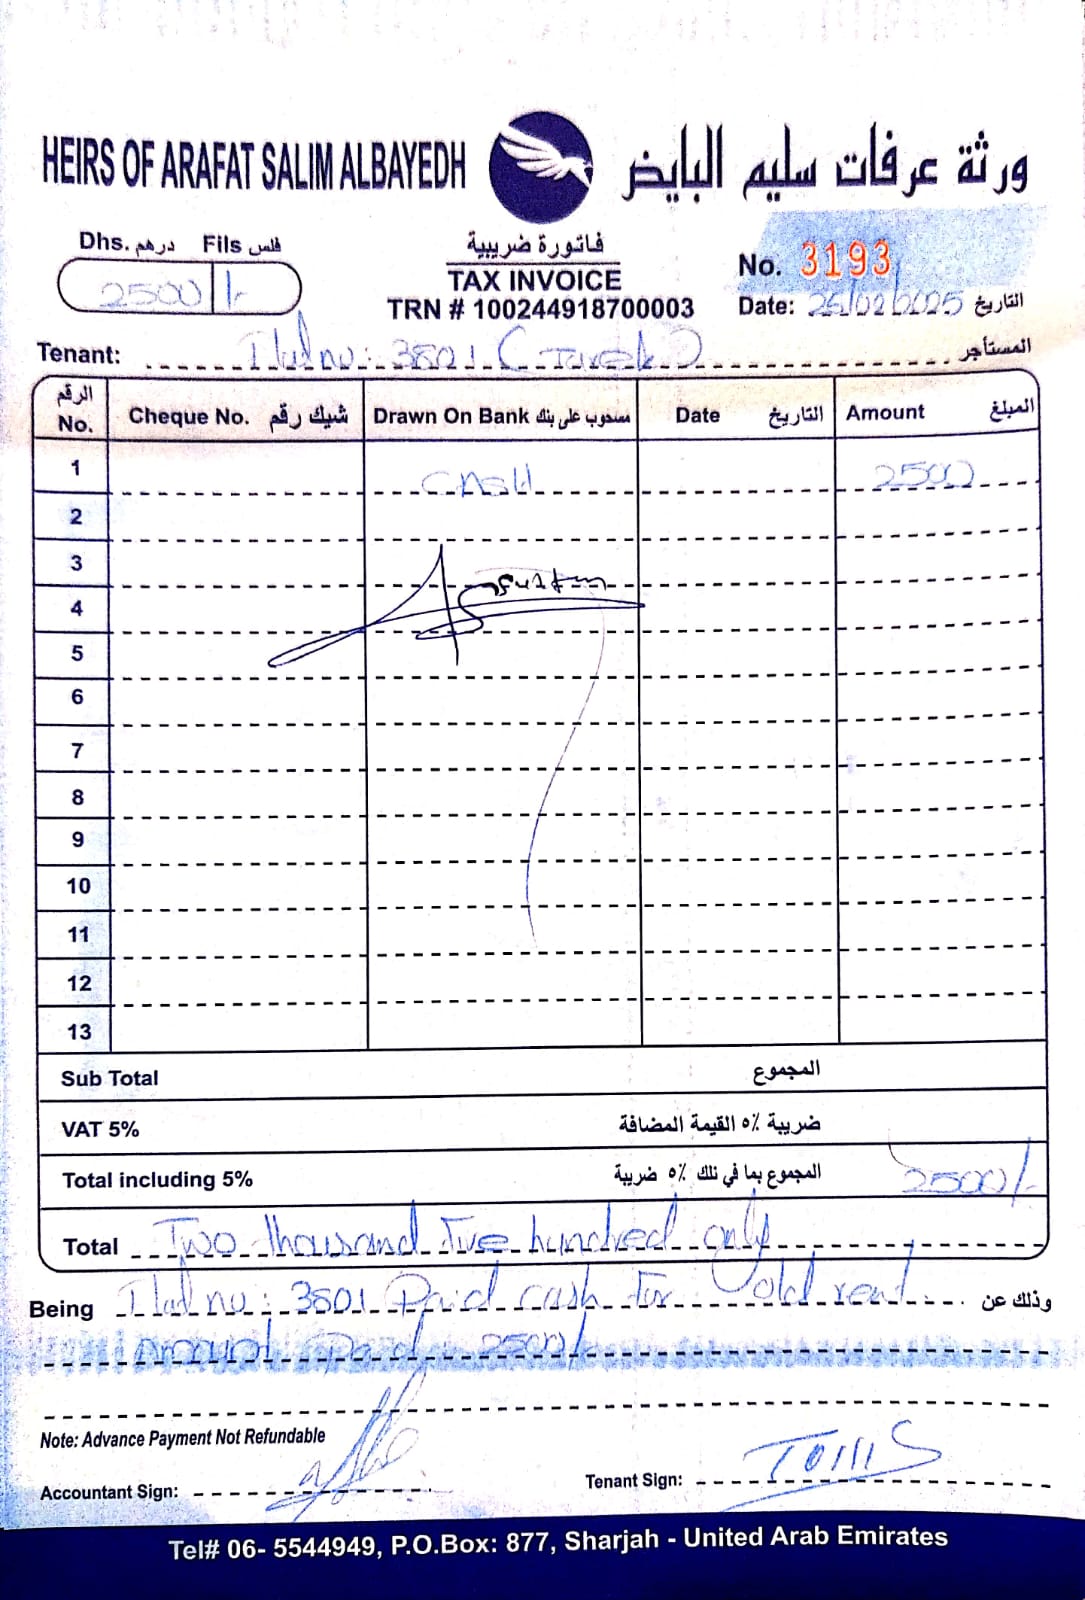 HEIRS OF ARAFAT SALIM ALBAYEDH ورثة عرفات سليم البايض
Dhs. درهم Fils فلس
2500 /-
فاتورة ضريبية
TAX INVOICE
TRN # 100244918700003
No. 3193
Date: 25/02/2025 التاريخ
Tenant: Flat no: 3501 (Tarek) المستأجر
الرقم No. Cheque No. شيك رقم Drawn On Bank مسحوب على بنك Date التاريخ Amount المبلغ
1 CASH 2500
2
3
4
5
6
7
8
9
10
11
12
13
Sub Total المجموع
VAT 5% ضريبة ٥٪ القيمة المضافة
Total including 5% المجموع بما في ذلك ٥٪ ضريبة 2500/-
Total Two thousand Five hundred only
Being Flat no: 3501 Paid cash for old rent وذلك عن
Amount Paid 2500/-
Note: Advance Payment Not Refundable
Accountant Sign:
Tenant Sign:
Tel# 06- 5544949, P.O.Box: 877, Sharjah - United Arab Emirates